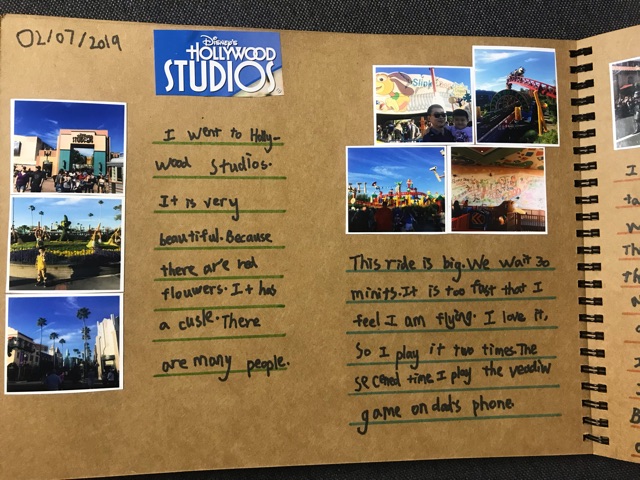 02/07/2019
Disney's
HOLLYWOOD
STUDIOS
I went to Holly-
wood Studios.
It is very
beautiful. Because
there are red
flouwers. It has
a cusle. There
are many people.
This ride is big. We wait 30
minits. It is too fast that I
feel I am flying. I love it,
So I play it two times. The
secened time. I play the veadiw
game on dad's phone.
I